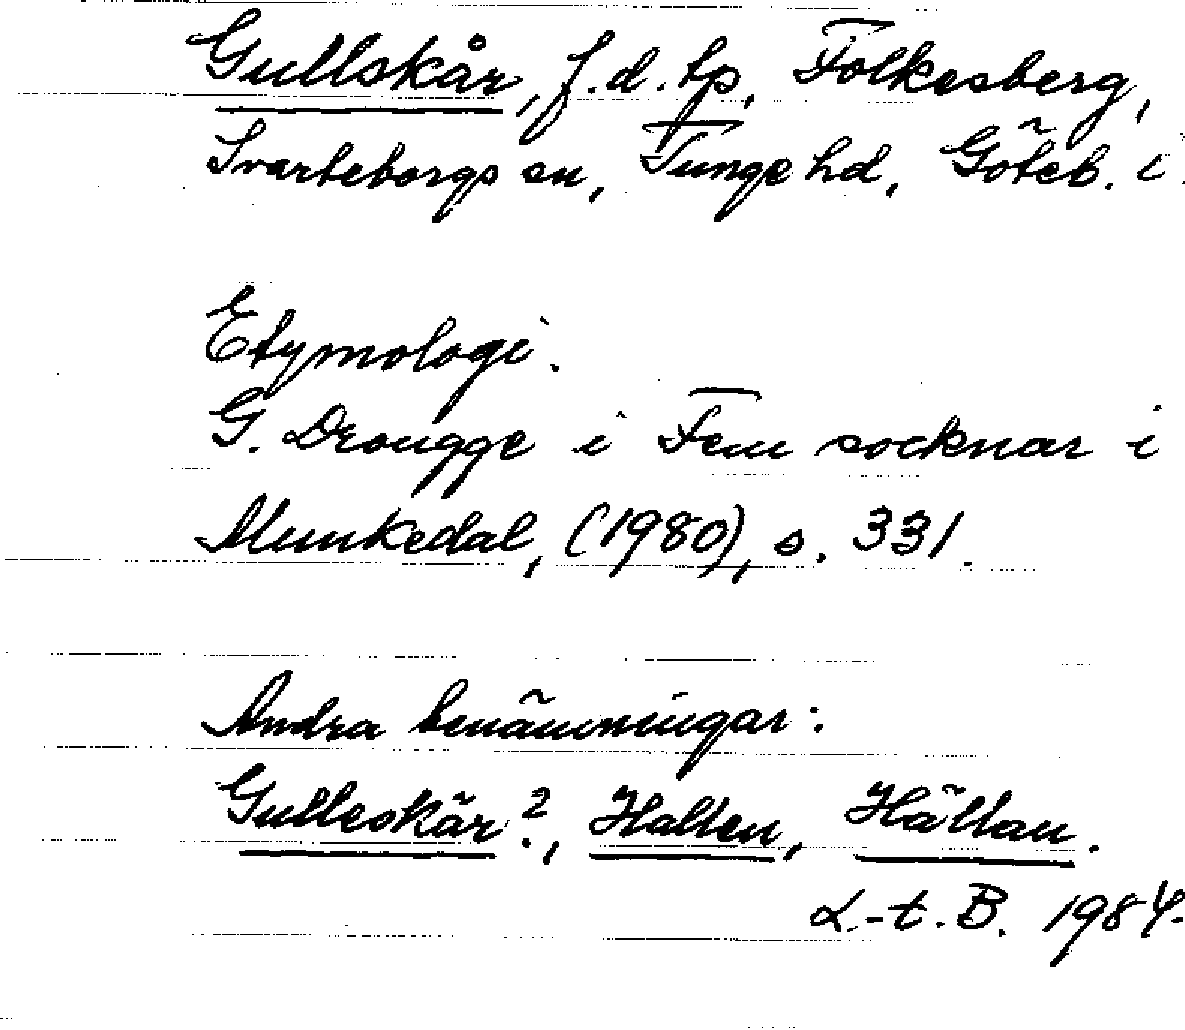 Gullskår, f.d. tp, Folkesberg,
Svarteborgs sn, Tunge hd, Göteb. l.
Etymologi.
G. Drougge i Fem socknar i
Munkedal, (1980), s. 331.
Andra benämningar:
Gulleskär?, Hallen, Hällan.
L.-t. B. 1984.